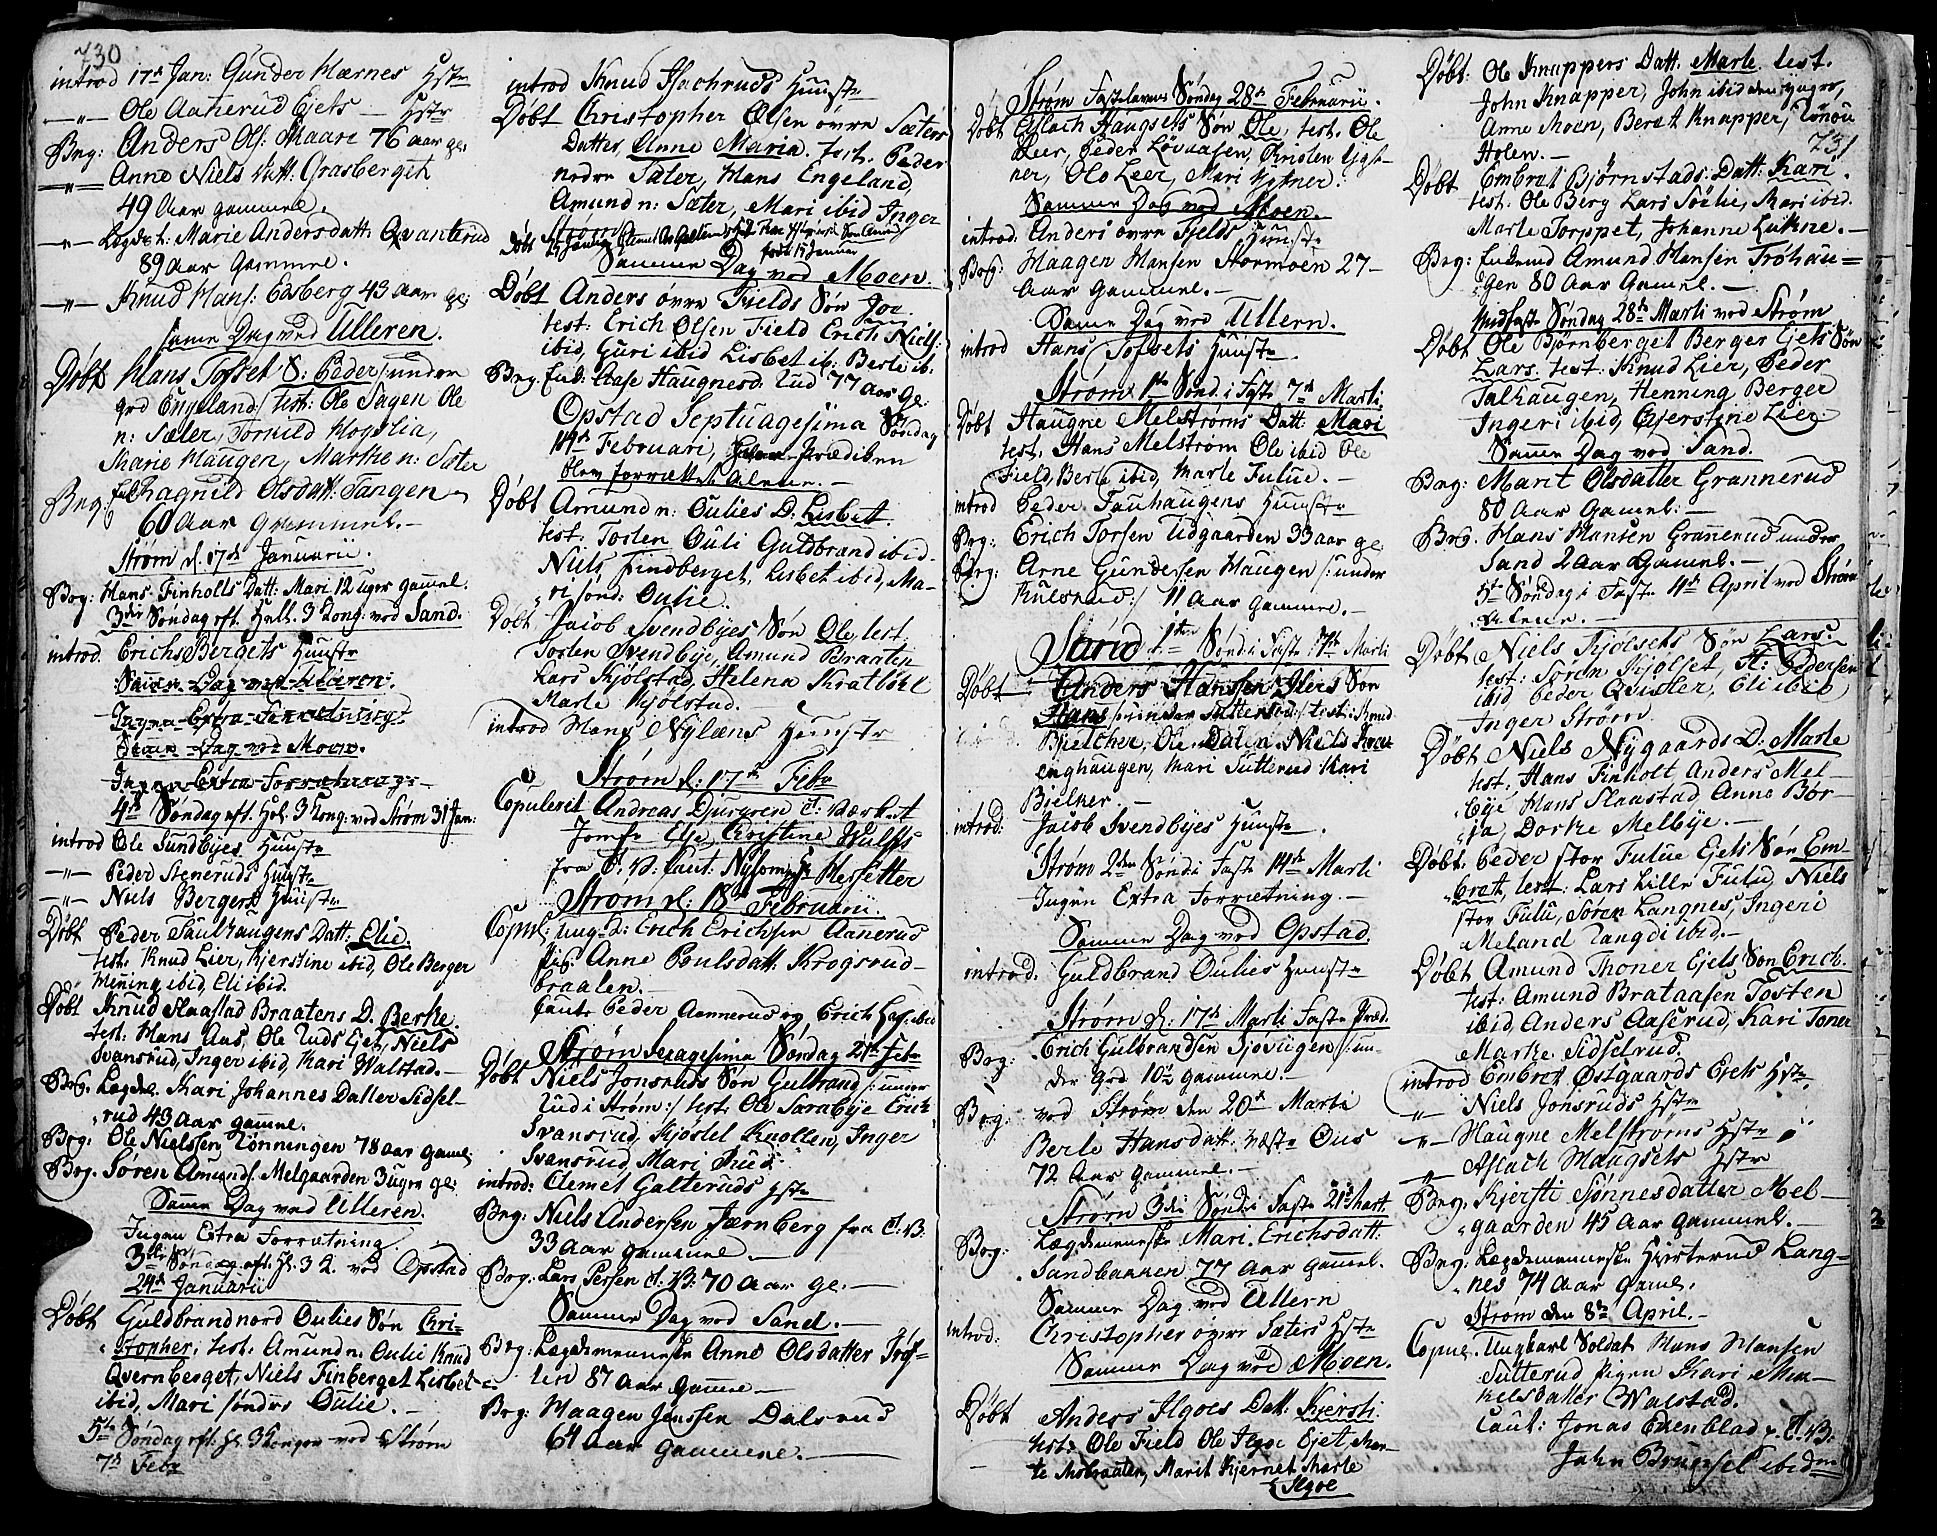 730
introd 17de Jan: Gunder Mærnes Hstr
—"— Ole Aaserud Ejets — Hstr
Beg: Anders Ols: Maari 76 aar ge:
—"— Anne Niels Datt: Grasberget
49 Aar gammel.
—"— Lægdsl: Marie Andersdatt: Qvanterud
89 Aar Gammel.
—"— Knud Hans: Edsberg 43 Aar ge:
samme Dag ved Ulleren.
Døbt Hans Tofset S: Peder /: under
grd Engeland / test: Ole Sagen Ole
n: Sæter, Torkild Mogslia,
Marie Haugen, Marthe n: Sæter
Beg: Enk: Ragnild Olsdatt: Tangen
60 Aar Gammel. —
Strøm d. 17de Januarii.
Beg: Hans Finholts Datt: Mari 12 uger gammel.
3die Søndag eft. Hell. 3 Kong: ved Sand.
introd. Erichs Bergets Huustr
Samme Dag ved Ulleren.
Ingen Extra Forretning
Samme Dag ved Moen.
Ingen Extra Forretning
4de Søndag eft. Hel. 3 Kong: ved Strøm 31 Jan:
introd Ole Sundbyes Huustr
—"— Peder Steneruds Huustr
—"— Niels Bergers Huustr
Døbt Peder Taulhaugens Datt: Elie
test: Knud Lier, Kjerstine ibid, Ole Berger
Mening ibid, Eli ibid.
Døbt Knud Slaastad Braatens D. Berthe.
test: Hans Aas, Ole Ruds Ejet, Niels
Svansrud, Inger ibid, Kari Walstad. —
Beg. Lægdsl. Kari Johannes Datter Sidsel-
rud 43 Aar gammel.
Beg: Ole Nielssen Tønningen 78 aar gamel
Beg. Søren Amunds: Melgaarden 3 uger ge:
Samme Dag ved Ulleren.
Ingen Extra Forretning
3die Søndag eft. H. 3 K. ved Opstad
24de Januarii
Døbt Guldbrand nord Oulies Søn Chri-
stopher, test: Amund n: Oulie Knud
Qvernberget, Niels Finberget Lisbet
ibid, Mari søndre Oulie. —
5te Søndag eft: H. 3 Konger ved Strøm
7de Febr
introd Knud Hachruds Huustr
Døbt Christopher Olsen øvre Sæters
Datter Anne Maria. test. Peder
nedre Sæter, Hans Engeland,
Amund n: Sæter, Mari ibid Inger
Strøm
Samme Dag ved Moen.
Døbt Anders øvre Fields Søn Joe
test: Erich Olsen Field Erich Niels:
ibid, Guri ibid Lisbet ib: Berte ib.
Beg: Enk: Aase Haugnesd. Rud 77 aar Ge.
Opstad Septuagesima Søndag
14de Februari, Prædiken
blev forrettet alene. —
Døbt Amund n: Oulies D: Lisbet.
test: Tosten Ouli Guldbrand ibid.
Niels Findberget, Lisbet ibid, Ma-
ri sønd: Oulie.
Døbt Jacob Svendbyes Søn Ole test.
Tosten Svendbye, Amund Braaten
Lars Kjølstad, Helena Skratbøl
Marte Kjølstad.
introd Hans Nylæns Huustr
Strøm d: 17de Febr
Copulerit Andreas Djurgren C. Værket
Jomfr Else Christine Wulfs
fra O. V: Caut: Nysom & Messetter
Strøm d. 18de Februarii.
Copul: Ung. K: Erich Erichsen Aanerud
Pig: Anne Poulsdatt: Krogsrud-
braaten. —
Caut: Peder Aannerud og Erich Lars: ibid
Strøm Sexagesima Søndag 21de Febr
Døbt Niels Jonsruds Søn Gulbrand, /: under
Rud i Strøm :/ test. Ole Sarabye Erich
Svansrud, Kjøstel Knollen, Inger
Svansrud, Mari Ruud
introd: Clemet Galteruds Hstr
Beg: Niels Andersen Jærnberg fra O. V:
33 Aar gammel. —
Beg: Lars Persen O. V: 70 Aar ge. —
Samme Dag ved Sand. —
Beg: Lægdemenneske Anne Olsdatter Trøf-
ten 87 Aar gamme —
Beg: Haagen Jenssen Dalsrud
64 Aar gammel. —
Strøm Fastelavens Søndag 28de Februarii.
Døbt Aslach Haugsets Søn Ole, test. Ole
Leer, Peder Løvaasen, Kristen Ugst-
ner, Ole Leer, Mari Ugtner.
Samme Dag ved Moen.
introd: Anders øvre Fjelds Huustr
Beg: Haagen Hansen Stormoen 27 —
Aar gammel. —
Samme Dag ved Ullern.
introd Hans Tofsets Huustr.
Strøm 1te Sønd: i Fast. 7de Marti.
Døbt Haugne Melstrøms Datt: Mari
test. Hans Melstrøm Ole ibid Ole
Field, Berte ibid, Marte Fulue. —
introd Peder Tauhaugens Huustr
Beg: Erich Torsen Tidgaarden 33 aar ge.
Beg: Arne Gundersen Haugen /: under
Kulsrud :/ 11 Aar gammel. —
Sand 1ste Sønd: i Fast. 7de Marti
Døbt Anders Hanssen Ilers Søn
Hans /: under Sutterud :/ test: Knud
Bjelcher, Ole Dalen, Niels Kva-
enghaugen, Mari Sutterud Kari
Bjelker. —
introd: Jacob Svendbyes Huustr.
Strøm 2den Sønd: i Fast. 14de Marti
Ingen Extra Forretning. —
Samme Dag ved Opstad.
introd: Guldbrand Oulies Huustr
Strøm d: 17de Marti Faste Præd.
Beg: Erich Gulbrandsen Sjøviigen /: un-
der Grd 10 1/2 gammel. —
Beg: ved Strøm den 20de Marti
Berte Hansdatt: Væstr Ous
72 Aar gammel. —
Strøm 3die Sønd: i Fast 21de Mart.
Beg: Lægdemenneske Mari Erichsdatt:
Sandbakken 77 Aar gammel.
Samme Dag ved Ullern
introd: Christopher øvre Sæters Hstr
Samme Dag ved Moen.
Døbt Anders Ilgoes Datt: Kjersti.
test: Ole Field Ole Ilgoe Ejet, Mar-
te Mobraaten, Marit Kjernet Marte
Ilgoe
731
Døbt: Ole Knappers Datt: Marte test.
John Knapper, John ibid den yngre,
Anne Moen, Beret Knapper, Tønou
Holen. —
Døbt Embret Bjørnstads: Datt: Kari.
test: Ole Berg Lars Søelie, Mari ibid.
Marte Torppet, Johanne Lukne. —
Beg: Enkemd Amund Hansen Trøhau-
gen 80 Aar Gamel. —
Midfaste Søndag 28de Marti ved Strøm
Døbt Ole Bjørnberget Berger Ejets Søn
Lars. test: Knud Lier, Peder
Talhaugen, Henning Berger
Ingeri ibid, Kjerstine Lier.
Samme Dag ved Sand.
Beg: Marit Olsdatter Grannerud
80 Aar Gamel: —
Beg. Hans Hansen Grannerud under
Sand 2 Aar Gamel. —
5te Søndag i Fast. 4de April ved Strøm
alene. —
Døbt Niels Kjølsets Søn Lars.
test: Søren Kjølset, H: Pedersen
ibid Peder Qvister, Eli ibid,
Inger Strøm.
Døbt Niels Nygaards D: Marte
test. Hans Finholt, Anders Mel-
bye Hans Slaastad Anne Bør-
ja, Dorthe Melbye. —
Døbt. Peder stor Fulue Ejets Søn Em-
bret, test: Lars Lille Fulu, Niels
stor Fulu, Søren Langnes, Ingeri
Meland Rangdi ibid. —
Døbt Amund Thoner Ejets Søn Erich.
test: Amund Brataasen Tosten
ibid, Anders Aaserud, Kari Toner
Marthe Sidselrud.
introd Embret Østgaards Ejets Hstr.
—"— Niels Jonsruds Hstr
—"— Haugne Melstrøms Hstr
—"— Aslach Haugsets Hstr
Beg: Kjersti Sønnesdatter Mel-
gaarden 45 Aar gammel. —
Beg: Lægdemenneske Hjerterud Lang-
nes 74 Aar gamel.
Strøm den 8de April. —
Copul. Ungkarl Soldat Hans Hansen
Sutterud Pigen Kari Mik-
kelsdatter Walstad.
Caut: Jonas Ekenblad v. O. V:
Jahn Brunsel ibidem